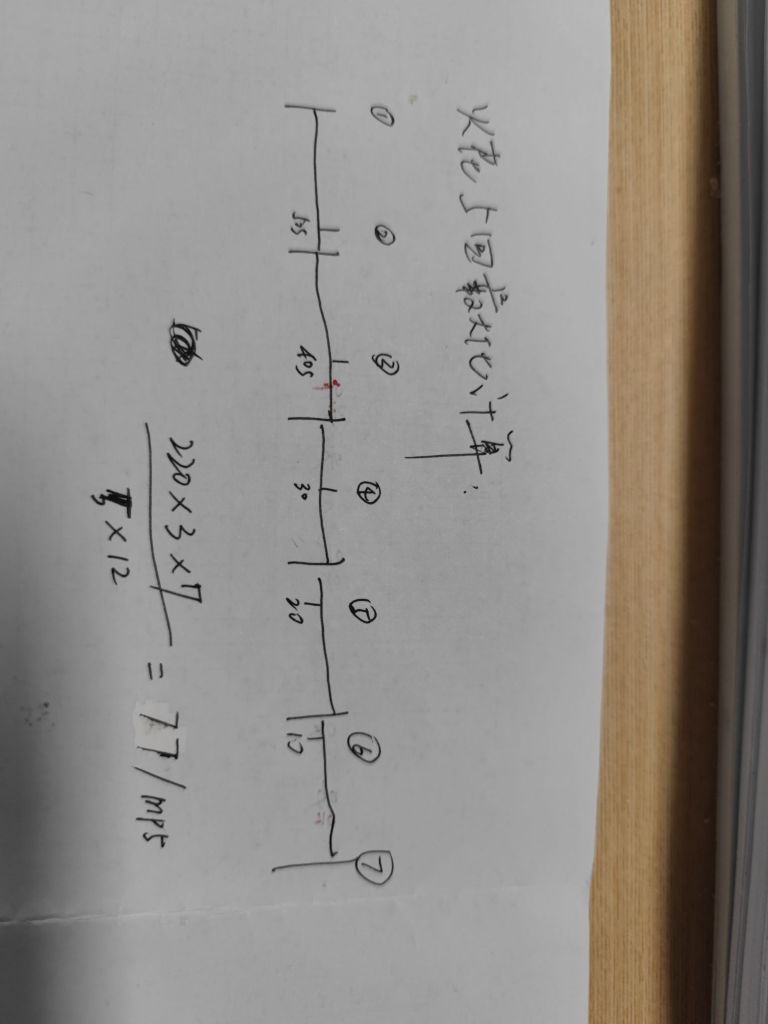 火花与回数对比计算.
① ② ③ ④ ⑥ ⑦
525 405 30 20 10
220×3×7
×12
= 77/mps